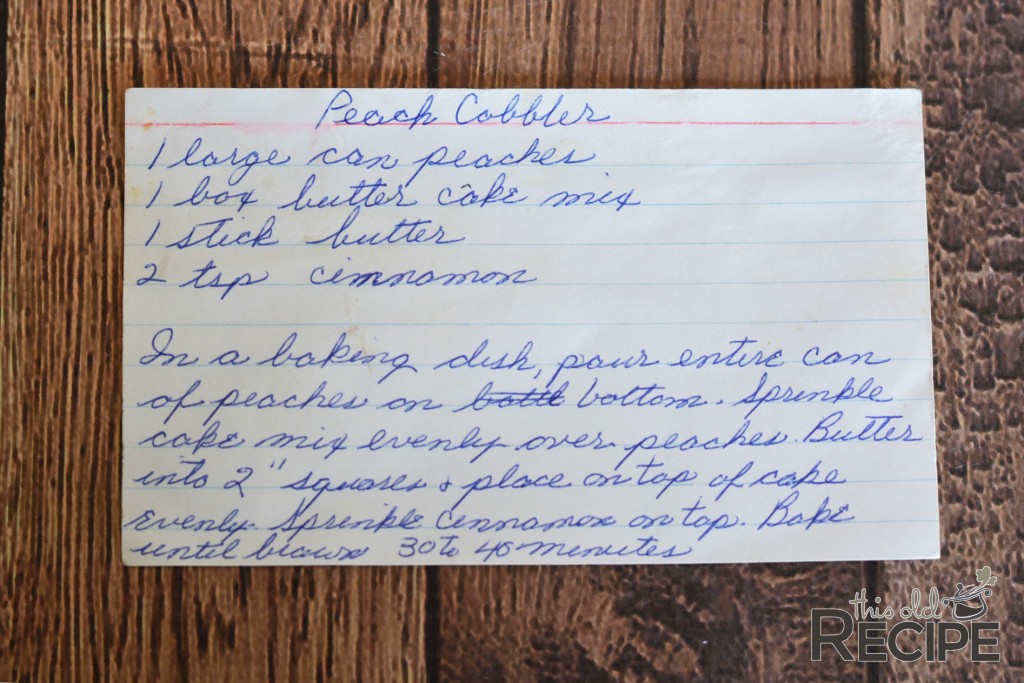 Peach Cobbler
1 large can peaches
1 box butter cake mix
1 stick butter
2 tsp cinnamon
In a baking dish, pour entire can
of peaches on bottom. Sprinkle
cake mix evenly over peaches. Butter
into 2" squares & place on top of cake
evenly. Sprinkle cinnamon on top. Bake
until brown 30 to 40 minutes
this old
RECIPE